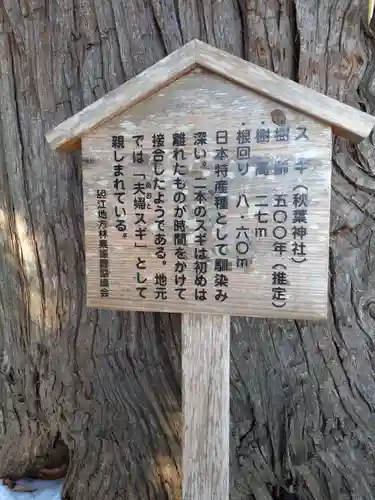 スギ（秋葉神社）
・樹齢 五〇〇年（推定）
・樹高 二七m
・根回り 八・六〇m
日本特産種として馴染み
深い。二本のスギは初めは
離れたものが時間をかけて
接合したようである。地元
では「夫婦スギ」として
親しまれている。
江地方林業振興協議会